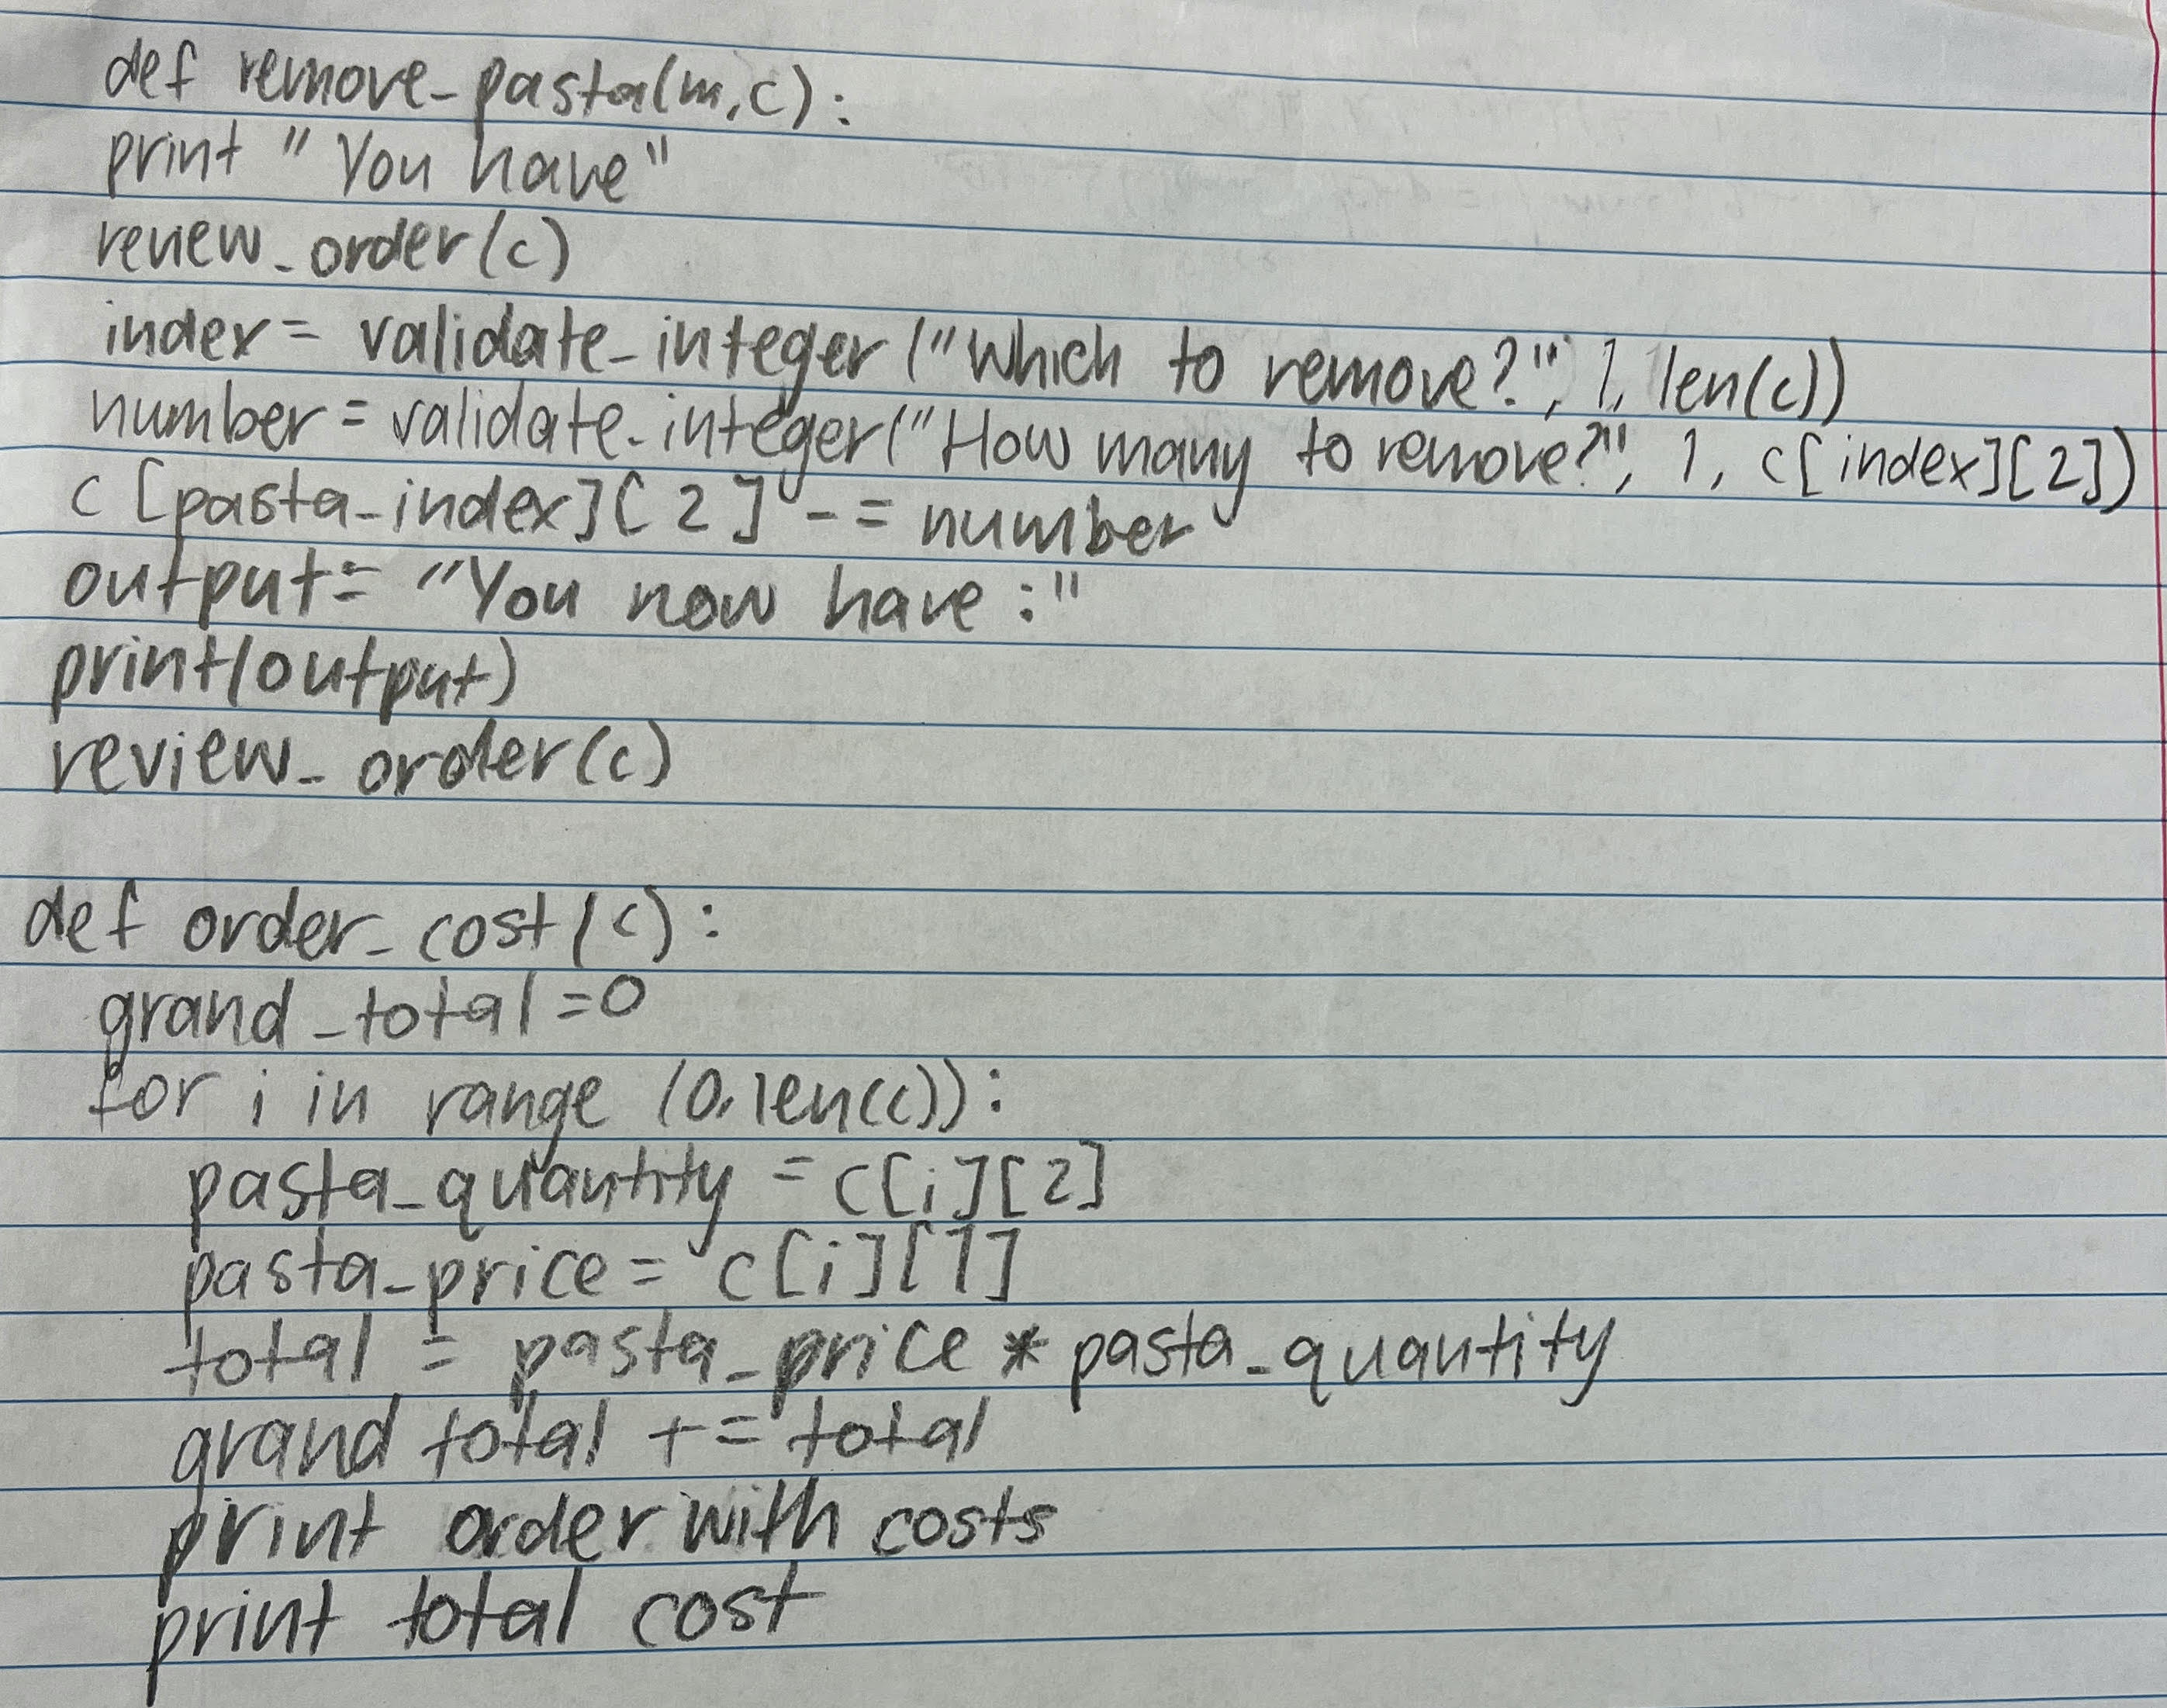 def remove_pasta(m,c):
print "You have"
review_order(c)
index = validate_integer("Which to remove?", 1, len(c))
number = validate_integer("How many to remove?", 1, c[index][2])
c[pasta_index][2] -= number
output = "You now have:"
print(output)
review_order(c)
def order_cost(c):
grand_total=0
for i in range (0,len(c)):
pasta_quantity = c[i][2]
pasta_price = c[i][1]
total = pasta_price * pasta_quantity
grand total += total
print order with costs
print total cost